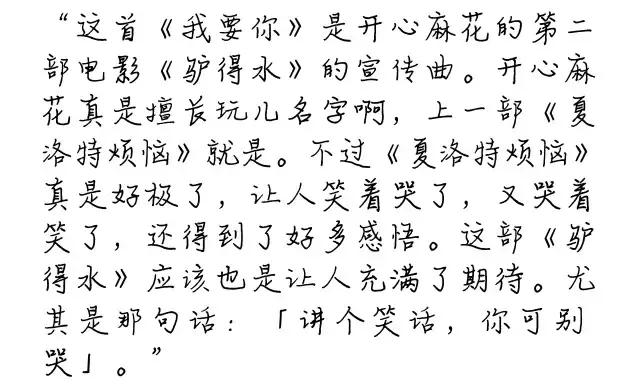 “这首《我要你》是开心麻花的第二
部电影《驴得水》的宣传曲。开心麻
花真是擅长玩儿名字啊，上一部《夏
洛特烦恼》就是。不过《夏洛特烦恼》
真是好极了，让人笑着哭了，又哭着
笑了，还得到了好多感悟。这部《驴
得水》应该也是让人充满了期待。尤
其是那句话：「讲个笑话，你可别
哭」。”